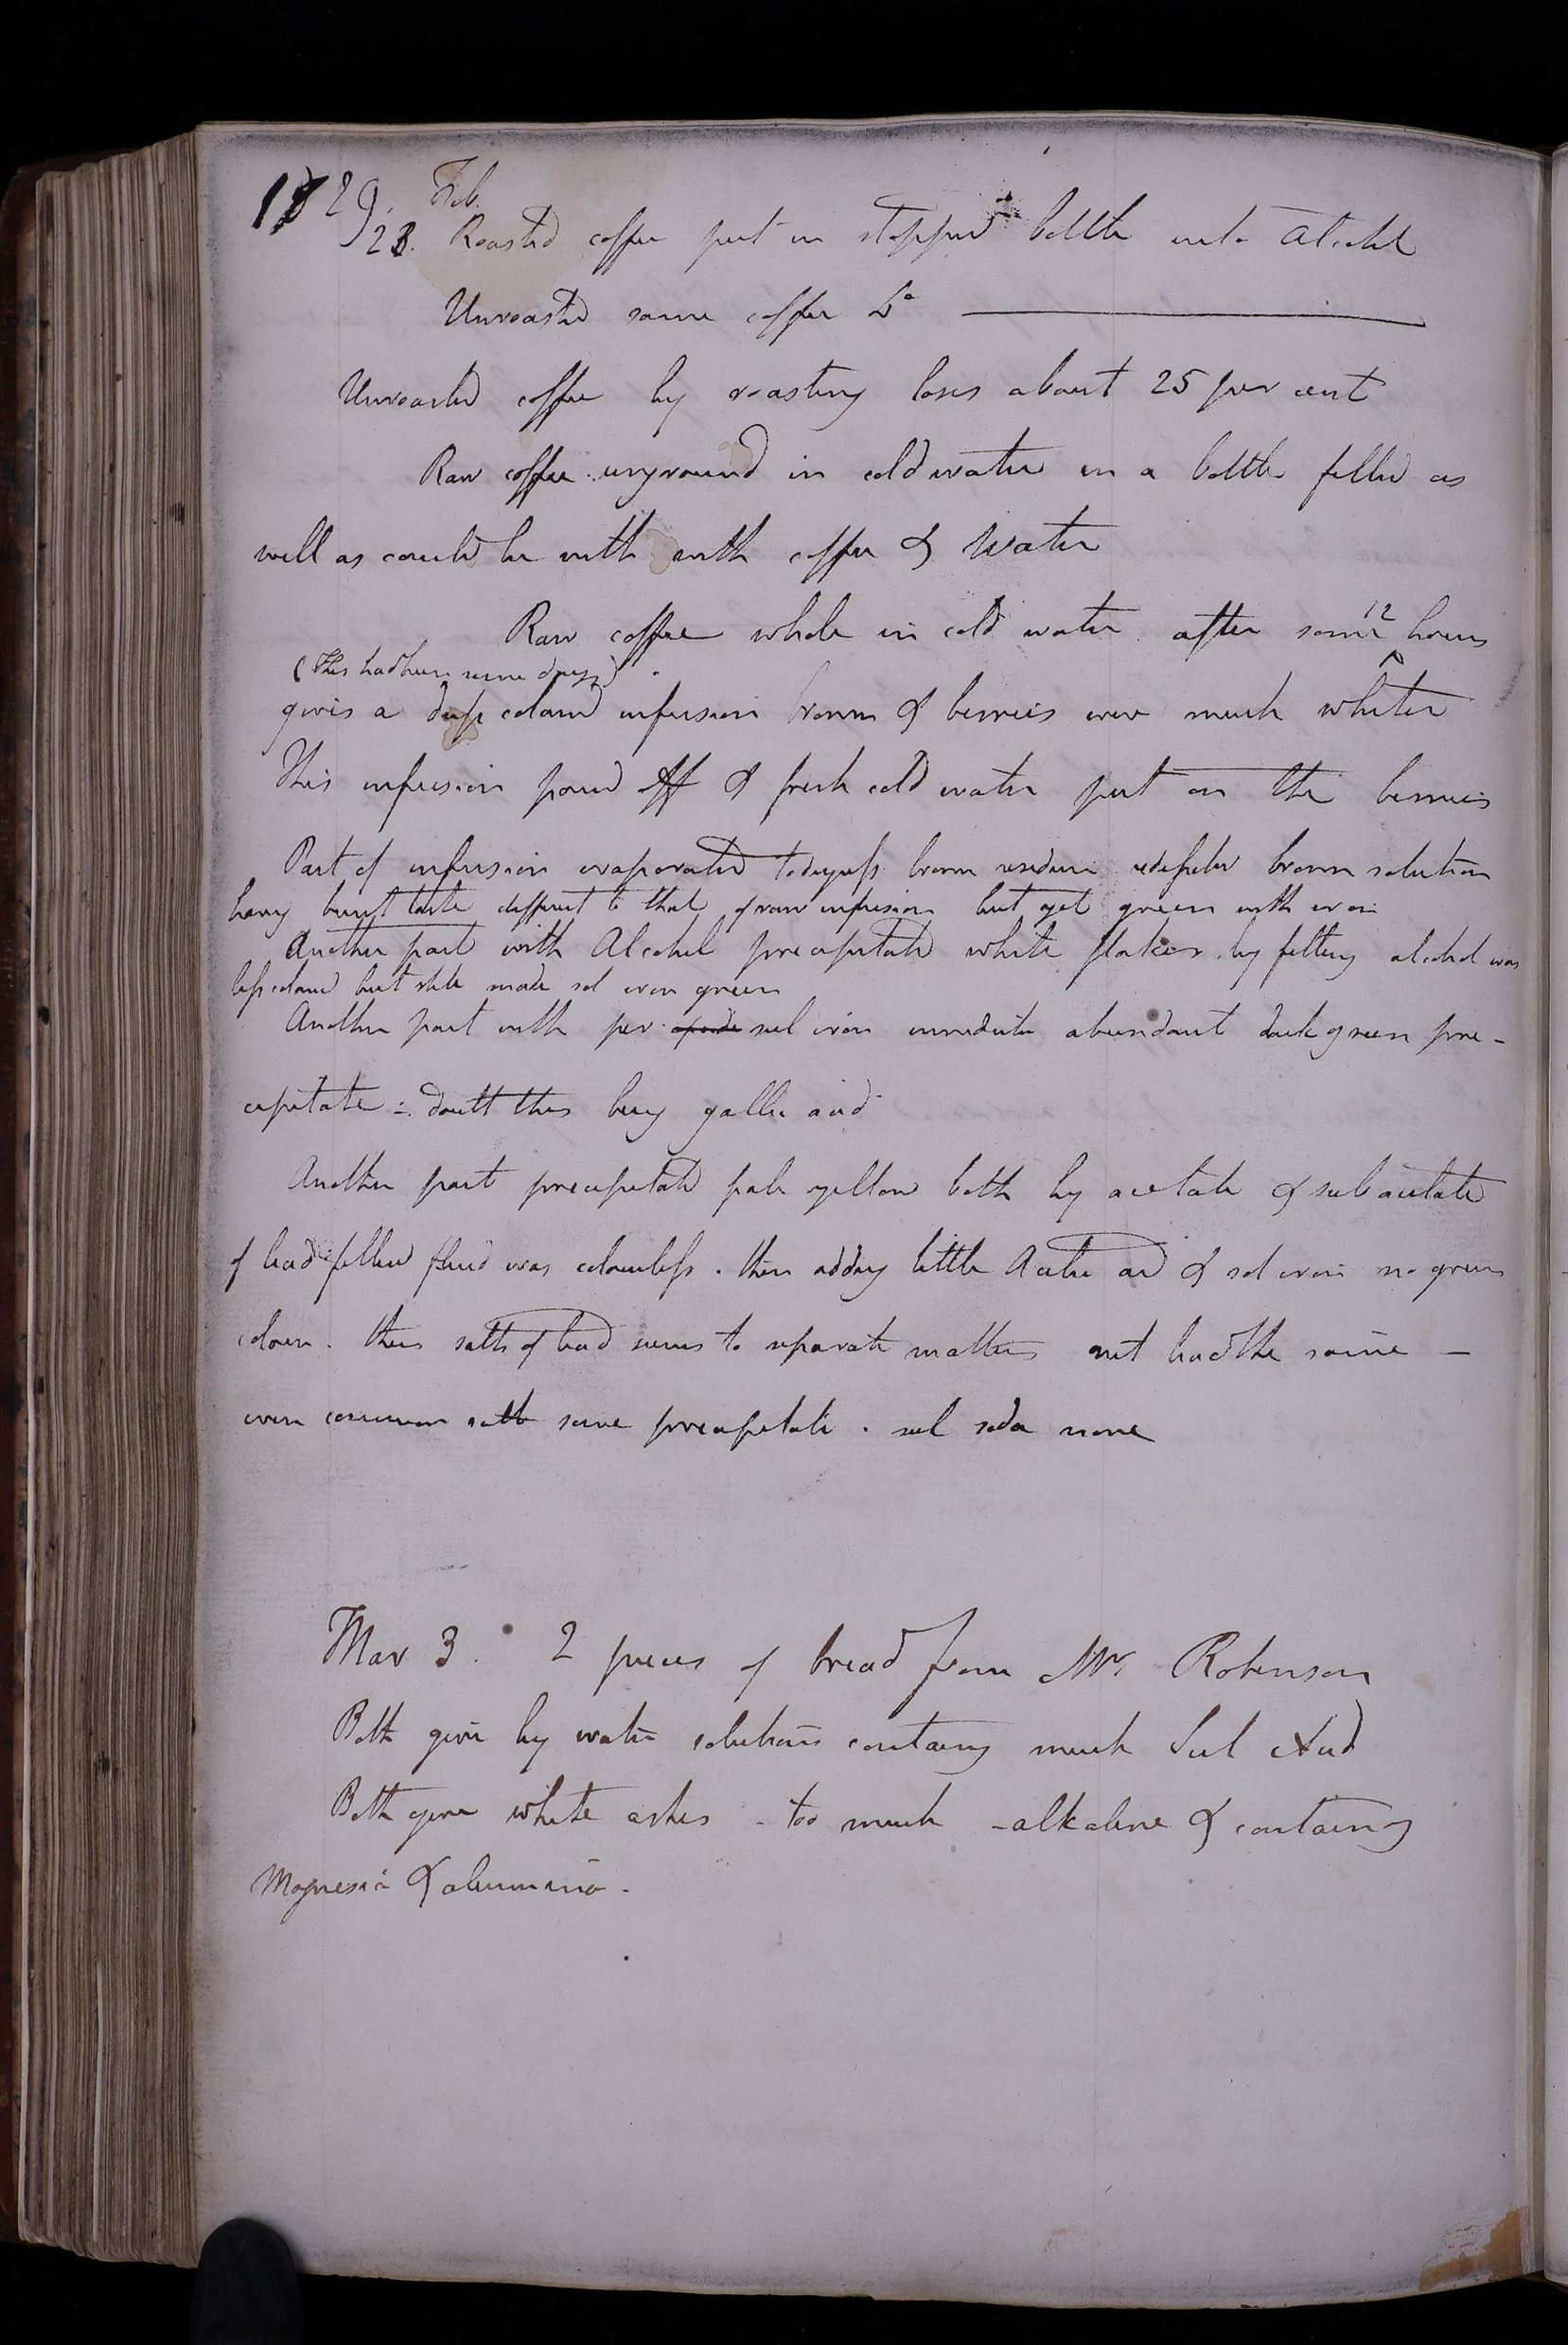 1829. Feb.
23. Roasted coffee put in stopped bottle into Alcohol
Unroasted some coffee Do
Unroasted coffee by roasting loses about 25 per cent
Raw coffee unground in cold water in a bottle filled as
well as could be with with coffee & water
Raw coffee whole in cold water after some 12 hours
(This had been some days)
gives a deep colored infusion brown & berries were much whiter
This infusion poured off & fresh cold water put on the berries
Part of infusion evaporated to dryness brown residue redissolved brown solution
having burnt taste different to that of raw infusion but yet green with iron
Another part with Alcohol precipitated white flakes. by filtering alcohol was
less colored but still made sol iron green
Another part with per sul iron immediate abundant dark green pre-
cipitate ∴ doubt this being gallic acid
Another part precipitated pale yellow both by acetate & subacetate
of lead filtered fluid was colourless. then adding little Acetic acid & sol iron no green
colour. thus salts of lead seems to separate matters nit lead the same -
even common salt some precipitate. sul soda none
Mar 3. 2 pieces of bread from Mr Robinson
Both give by water solutions containing much Sul Acid
Both give white ashes - too much - alkaline & containing
Magnesia & alumina.